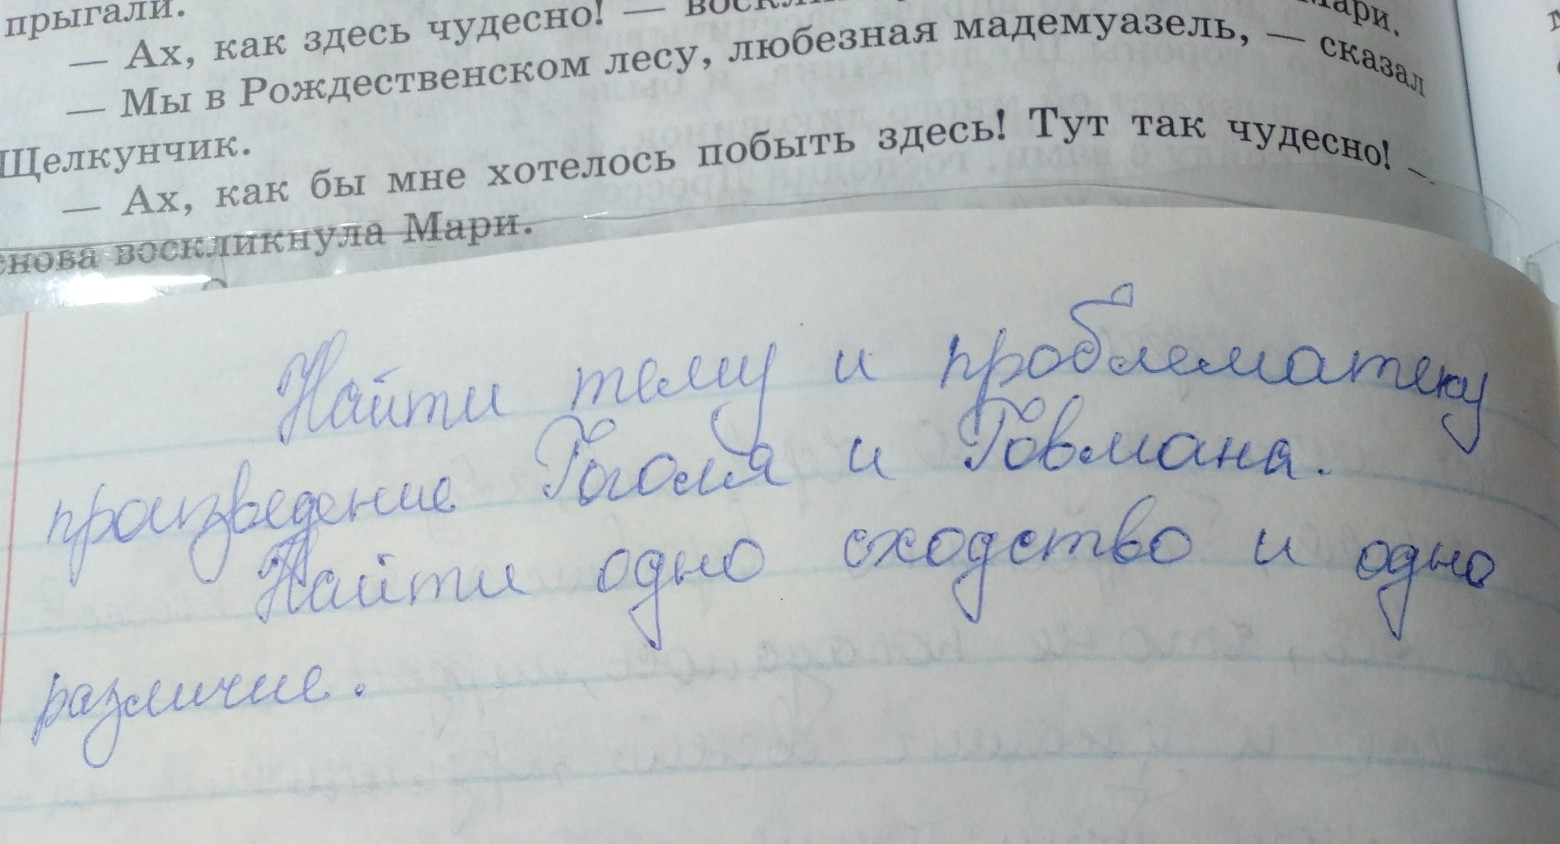 прыгали.
— Ах, как здесь чудесно! — Мари.
— Мы в Рождественском лесу, любезная мадемуазель, — сказал
Щелкунчик.
— Ах, как бы мне хотелось побыть здесь! Тут так чудесно! —
снова воскликнула Мари.
Найти тему и проблематеку
произведение Гоголя и Говмана.
Найти одно сходство и одно
различие.